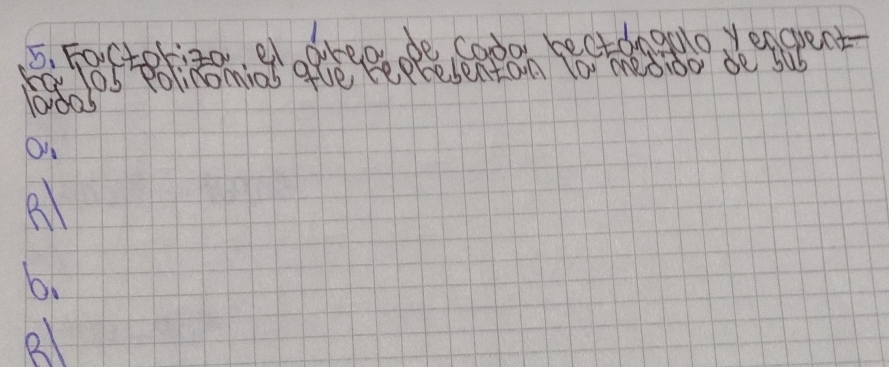 5. Factoriza el área de cada rectángulo y encuent-
ra los polinomios que representan la medida de sus
lados
a.
R/
b.
R/